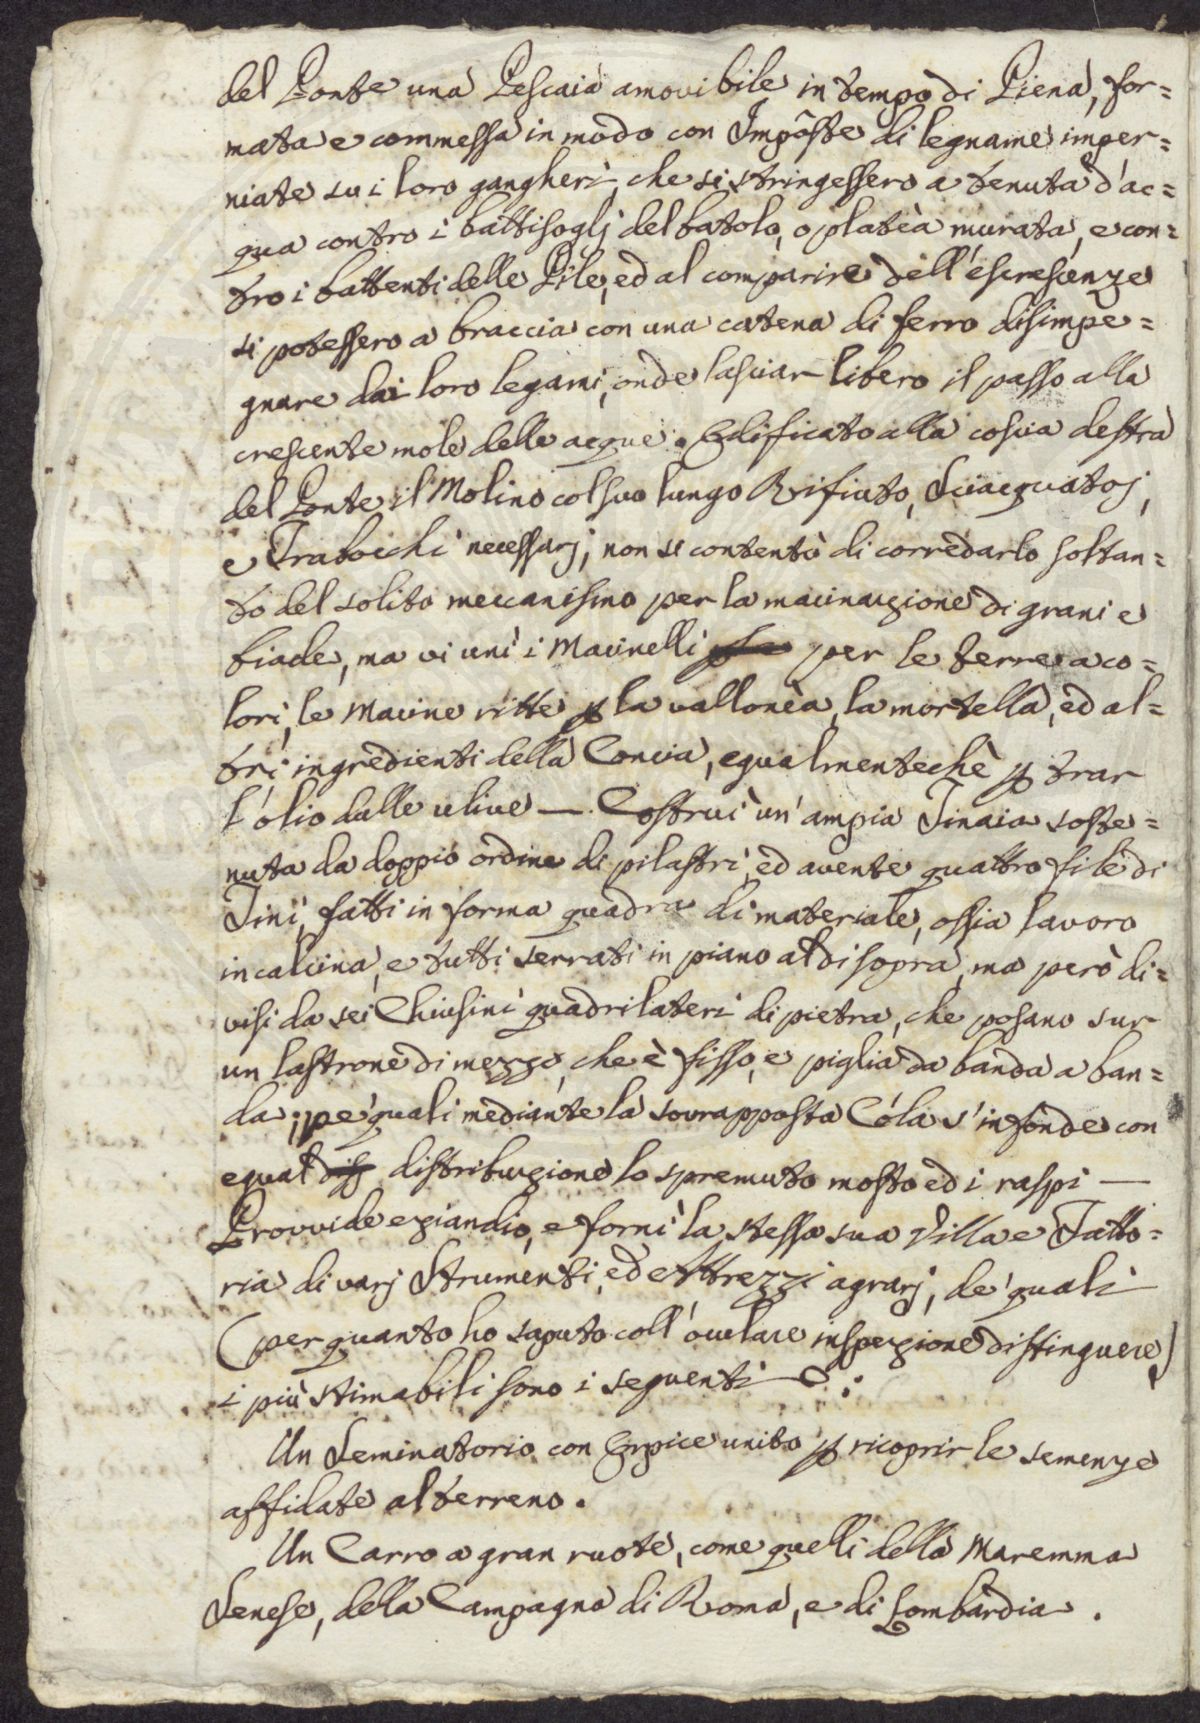 del Ponte una Pescaia amovibile in tempo di Piena, for=
mata e commessa in modo con Impòste di legname imper=
niate su i loro gangheri, che si stringessero a tenuta d'ac=
qua contro i battisoglj del batolo, o platèa murata, e con=
tro i battenti delle Pile, ed al comparire dell'escrescenze
si potessero a braccia con una catena di ferro disimpe=
gnare dai loro legami, onde lasciar libero il passo alla
crescente mole delle acque. Edificato alla coscia destra
del Ponte il Molino col suo lungo Rifiuto, Sciacquatoj,
e Trabocchi necessarj, non si contentò di corredarlo soltan=
to del solito meccanismo per la macinazione di grani e
biade, ma vi unì i Macinelli per le terre a co=
lori, le Macine ritte p la vallonèa, la mortella, ed al=
tri ingredienti della Concia, egualmentechè p trar
l'olio dalle ulive — Costruì un'ampia Tinaia soste=
nuta da doppio ordine di pilastri, ed avente quattro file di
Tini, fatti in forma quadra di materiale, ossia lavoro
in calcina, e tutti serrati in piano al di sopra, ma però di=
visi da sei Chiusini quadrilateri di pietra, che posano sur
un lastrone di mezzo, che è fisso, e piglia da banda a ban=
da; pe' quali mediante la sovrapposta Còla s'infonde con
egual distribuzione lo spremuto mosto ed i raspi —
Provvide eziandio, e fornì la stessa sua Villa e Fatto=
ria di varj Strumenti, ed Attrezzi agrarj, de' quali
(per quanto ho saputo coll'oculare inspezione distinguere)
i più stimabili sono i seguenti — :
Un Seminatorio con Erpice unito p ricoprir le semenze
affidate al terreno.
Un Carro a gran ruote, come quelli della Maremma
Senese, della Campagna di Roma, e di Lombardia.